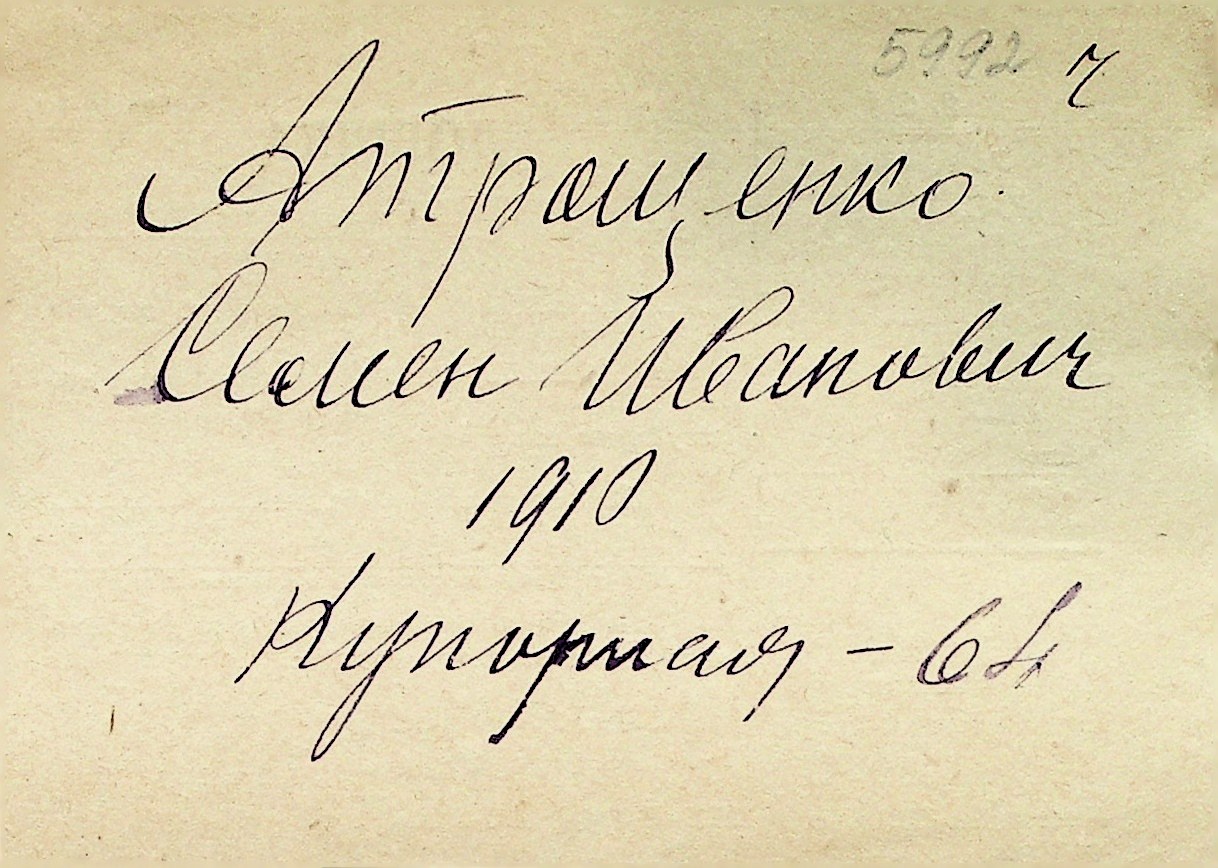 5992 ч
Атрощенко
Семен Иванович
1910
Купорная - 64